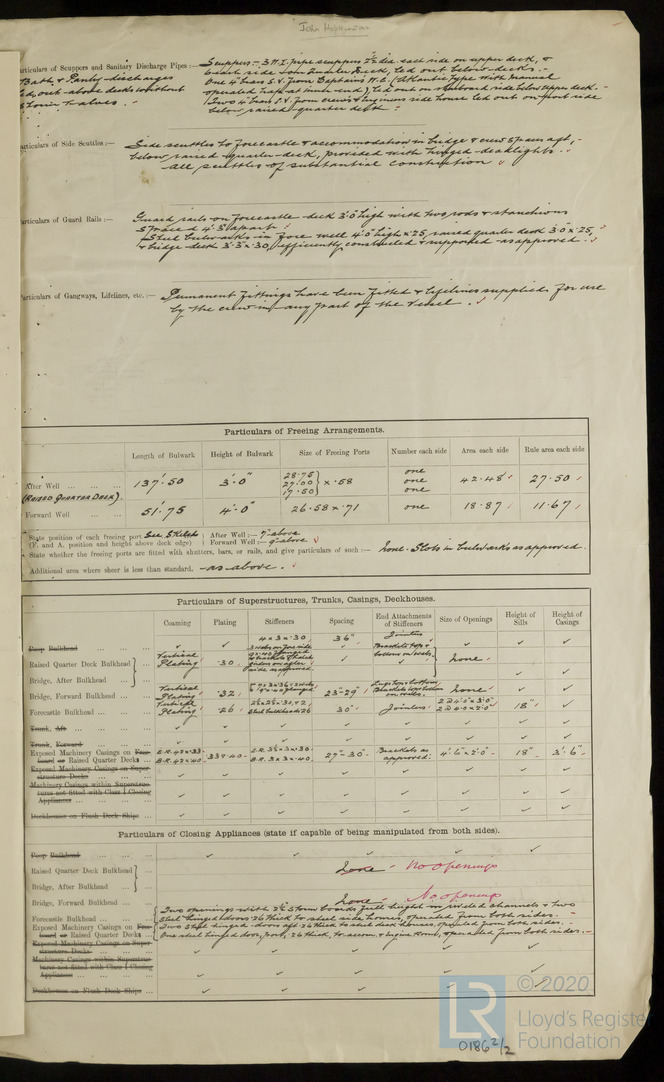 John
articulars of Scuppers and Sanitary Discharge Pipes :— Scuppers:— 3 H.I. pipe scuppers 2½ dia each side on upper deck, &
6 each side from Quarter Deck, led out below decks. –
Bath & Pantry discharges One 4" brass S.V. from Captains W.C. (Atlantic Type with manual
led, out above decks without operated trap at inner end) led out on Starboard side below Upper deck. –
Storm Valves. Two 4" brass S.V. from crew's & engineers side house led out on port side
below raised quarter deck :
articulars of Side Scuttles :— Side scuttles to forecastle & accommodation in bridge & crew spaces aft,
below raised quarter-deck, provided with hinged deadlights.
All scuttles of substantial construction ✓
articulars of Guard Rails :— Guard rails on forecastle deck 3'.0 high with two rods & stanchions
spaced 4'.3 apart
Steel bulwarks in fore well 4'.0 high × .25, raised quarter deck 3'.0 × .25,
& bridge deck 3'.3 × .30, efficiently constructed & supported as approved.
articulars of Gangways, Lifelines, etc. :— Permanent fittings have been fitted & lifelines supplied for use
by the crew in any part of the vessel . ✓
Particulars of Freeing Arrangements.
Length of Bulwark Height of Bulwark Size of Freeing Ports Number each side Area each side Rule area each side
After Well ... ... ... 137'.50 3'.0" 28.75 27.00 17.50 } × .58 one one one 42.48 27.50
(RAISED QUARTER DECK).
Forward Well ... ... 51'.75 4'.0" 26.58 × .71 one 18.87 11.67
State position of each freeing port See Sketch After Well :— 7" above
(F. and A. position and height above deck edge) Forward Well :— 9" above ✓
State whether the freeing ports are fitted with shutters, bars, or rails, and give particulars of such :— none. Slots in bulwarks as approved.
Additional area where sheer is less than standard. as above .
Particulars of Superstructures, Trunks, Casings, Deckhouses.
Coaming Plating Stiffeners Spacing End Attachments of Stiffeners Size of Openings Height of Sills Height of Casings
Poop Bulkhead ... ... ✓ ✓ 4 × 3 × .30 36" Jointers ✓ ✓ ✓
Raised Quarter Deck Bulkhead } Vertical Plating .30 ✓ Brackets top & bottom on webs none
Bridge, After Bulkhead ...
Bridge, Forward Bulkhead ... Vertical Plating .32 23"-29" Lugs top & bottom, Brackets top & bottom on webs. none ✓ ✓
Forecastle Bulkhead ... ... Vertical Plating .26 30" Jointers 2 @ 4'.0 × 3'.0 2 @ 4'.0 × 2'.0 18" ✓
Trunk, Aft ... ... ...
Trunk, Forward ... ...
Exposed Machinery Casings on Freeboard or Raised Quarter Decks ... E.R. 42 × .33 B.R. 42 × .40 E.R. 3½ × 3 × .30 B.R. 3 × 3 × .40 27"-30" Brackets as approved. 4'.6 × 2'.0 18" 3'.6"
Exposed Machinery Casings on Superstructure Decks ...
Machinery Casings within Superstructures not fitted with Class 1 Closing Appliances ... ...
Deckhouses on Flush Deck Ships ...
Particulars of Closing Appliances (state if capable of being manipulated from both sides).
Poop Bulkhead ... ... ✓ ✓ ✓ ✓
Raised Quarter Deck Bulkhead } none No openings
Bridge, After Bulkhead ...
Bridge, Forward Bulkhead ... none No openings
Forecastle Bulkhead ... ... Two openings with 2½ storm boards full height in welded channels & two
steel hinged doors .26 thick to steel side houses, operated from both sides. –
Exposed Machinery Casings on Freeboard or Raised Quarter Decks Two steel hinged doors aft .26 thick to steel deck houses, operated from both sides. –
One steel hinged door, port, .26 thick, to accom. & engine room, operated from both sides. –
Exposed Machinery Casings on Superstructure Decks ...
Machinery Casings within Superstructures not fitted with Class 1 Closing Appliances ... ...
Deckhouses on Flush Deck Ships ...
LR
© 2020
Lloyd's Register
Foundation
0186 2/2